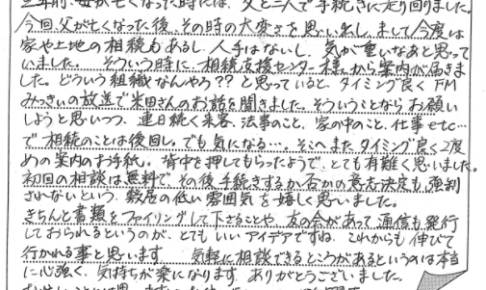 三年前、母が亡くなった時には、父と二人で手続きに走り回りました。
今回、父が亡くなった後、その時の大変さを思い出しまして、今度は
家や土地の相続もあるし、人手はないし、気が重いなあと思って
いました。そういう時に、相続支援センター様から案内が届きま
した。どういう組織なんやろ??と思っていると、タイミング良くFM
みっきぃの放送で米田さんのお話を聞きました。そういうことならお願い
しようと思いつつ、連日続く来客、法事のこと、家の中のこと、仕事etc…
で相続のことは後回し。でも気になる…。そこへまたタイミング良く2度
めの案内のお手紙。背中を押してもらったようで、とても有難く思いました。
初回の相談は無料で、その後手続きするか否かの意志決定も、強制
されないという、敷居の低い雰囲気を嬉しく思いました。
きちんと書類をファイリングして下さることや、友の会があって通信も発行
しておられるというのが、とてもいいアイデアですね。これからも伸びて
行かれる事と思います。気軽に相談できるところがあるというのは本当
に心強く、気持ちが楽になります。ありがとうございました。